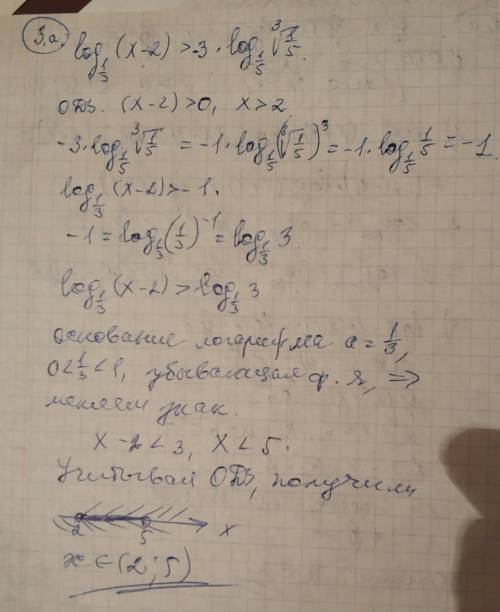 3.a) log_{1/3} (x-2) > -3 · log_{1/5} ∛(1/5).
ОДЗ. (x-2)>0, x>2
-3·log_{1/5} ∛(1/5) = -1·log_{1/5} (∛(1/5))³ = -1·log_{1/5} 1/5 = -1
log_{1/3} (x-2) > -1.
-1 = log_{1/3} (1/3)^{-1} = log_{1/3} 3
log_{1/3} (x-2) > log_{1/3} 3
основание логарифма a = 1/3,
0<1/3<1, убывающая ф. я, =>
меняем знак.
x-2<3, x<5.
Учитывая ОДЗ, получили
2 5 x
x ∈ (2; 5)